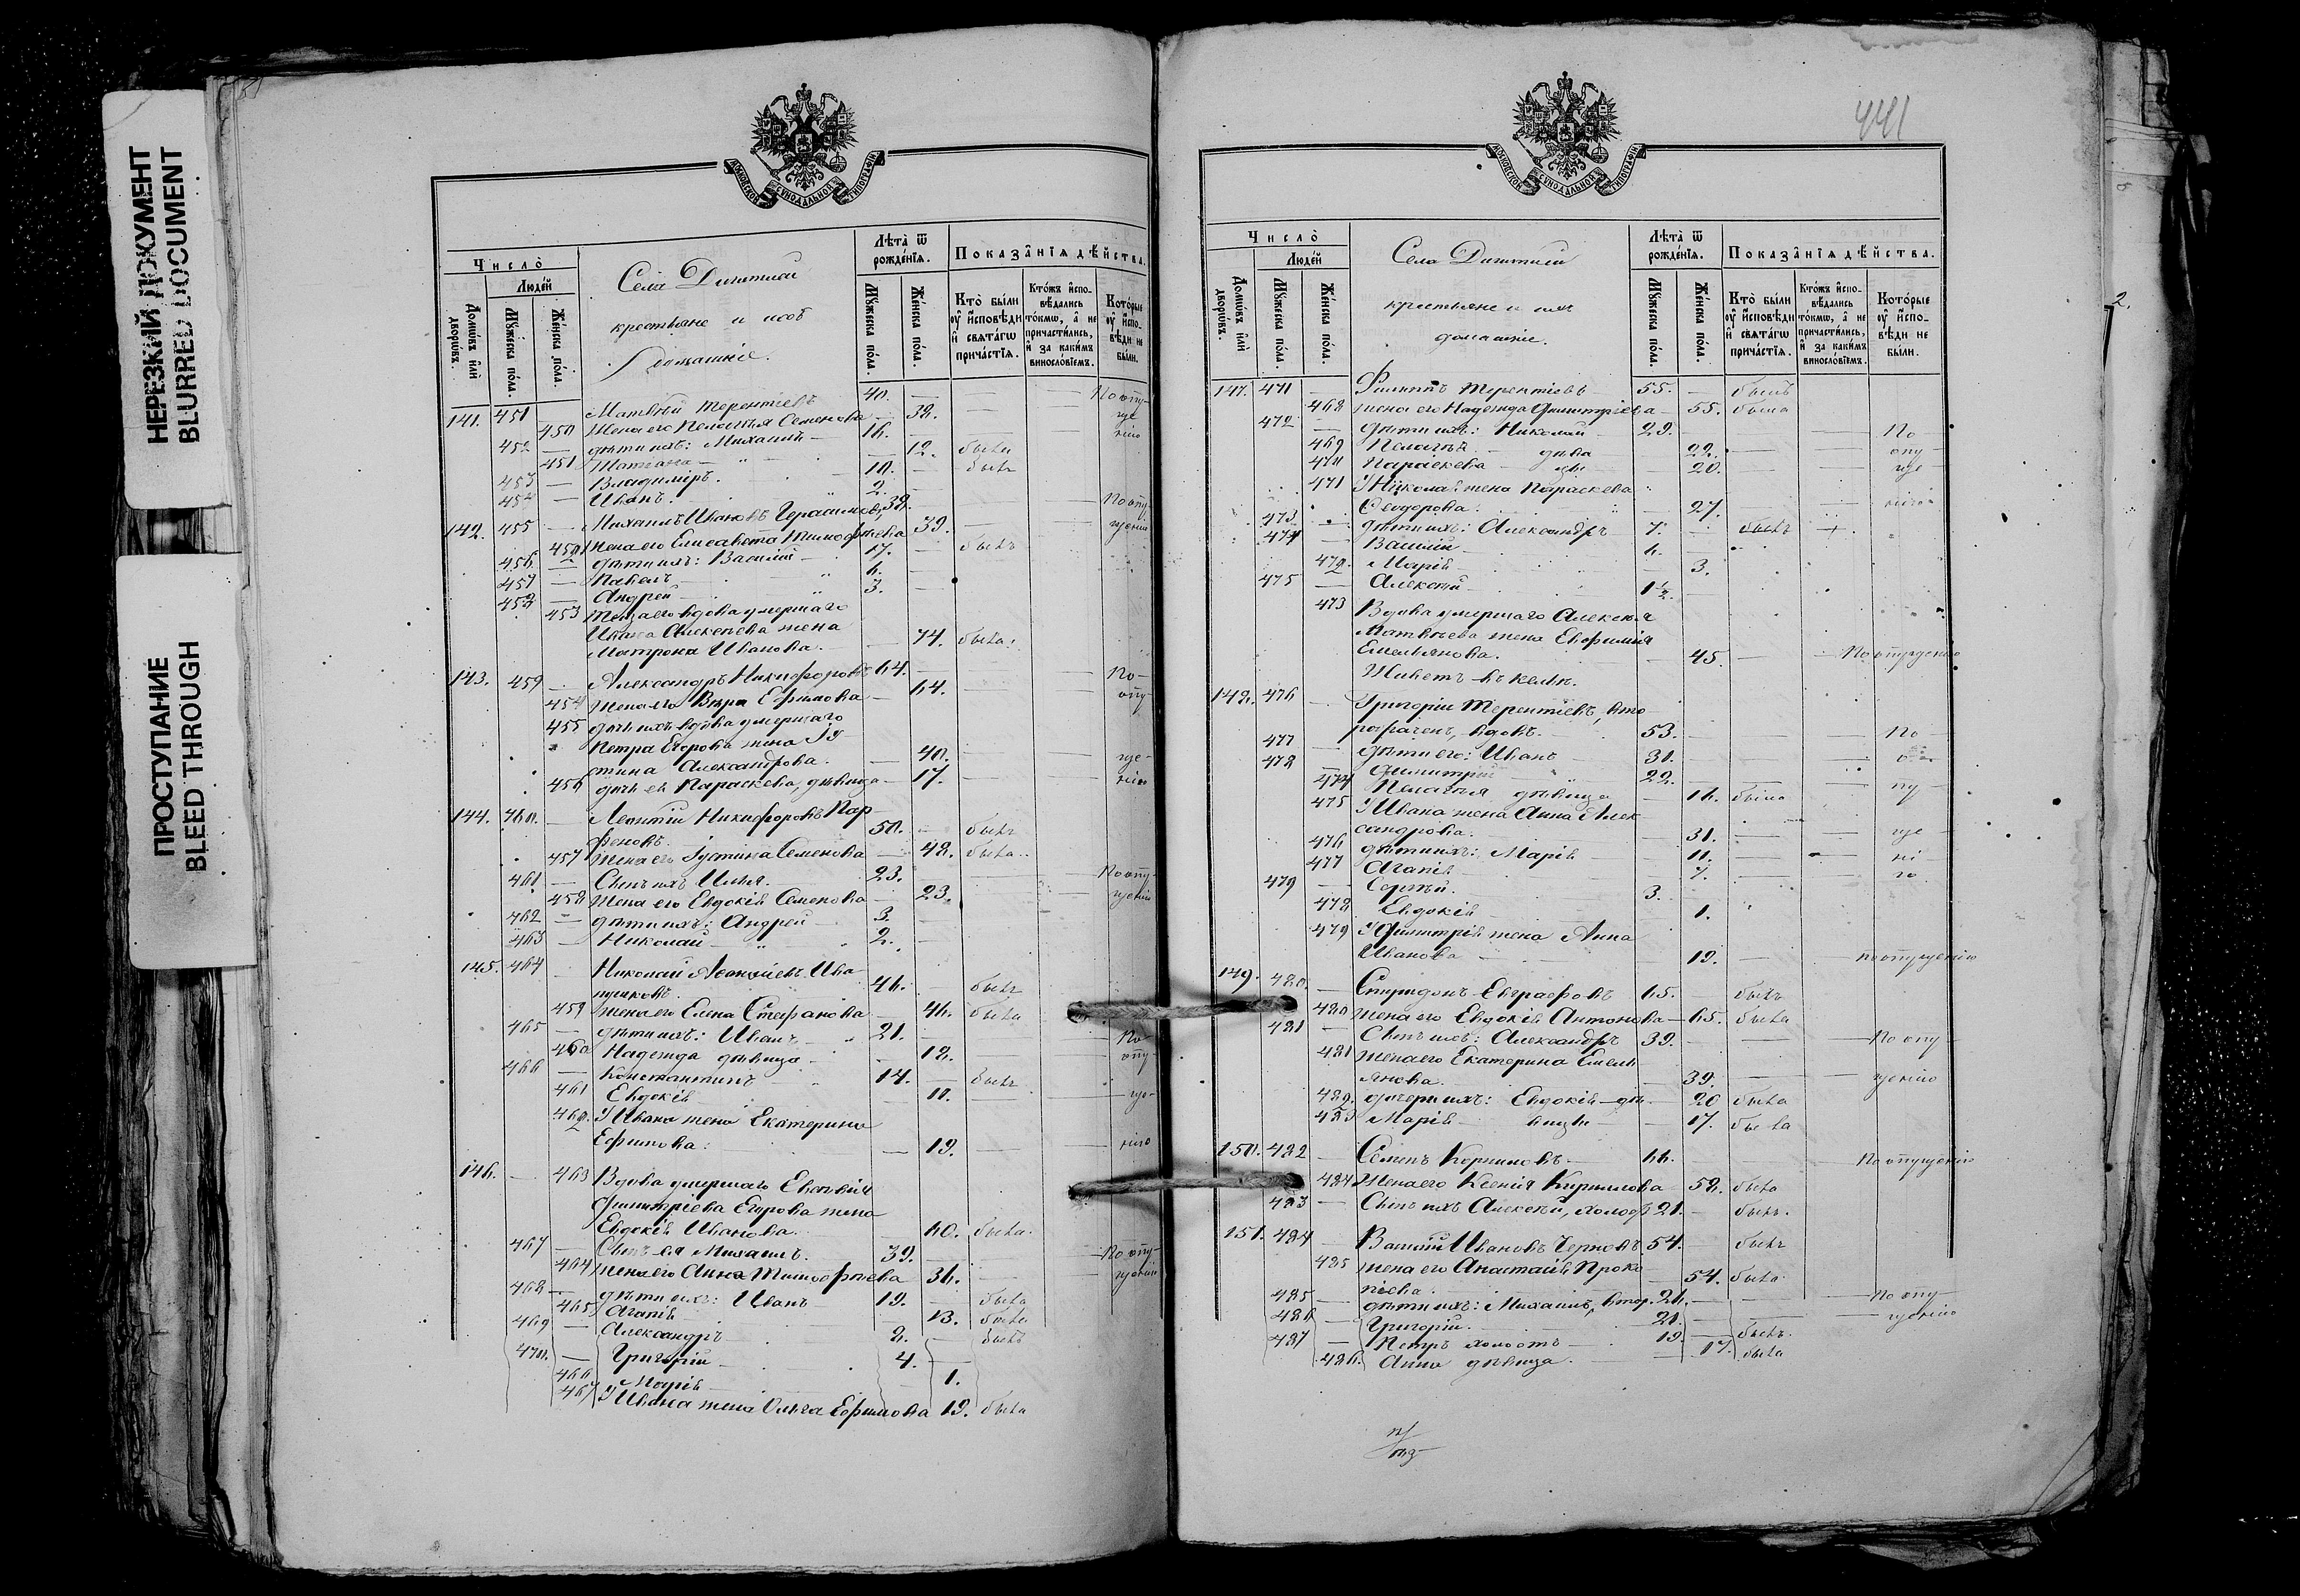 НЕРЕЗКИЙ ДОКУМЕНТ
BLURRED DOCUMENT
ПРОСТУПАНИЕ
BLEED THROUGH
МОСКОВСКОЙ СѴНОДАЛЬНОЙ ТИПОГРАФІИ
Число̀
Людей
Домѡвъ и҆лѝ дворѡвъ.
Мꙋжеска пола.
Женска пола.
Села
крестьяне и ихъ
домашніе.
Лѣта̀ ѿ рожденїѧ.
Мꙋжеска пола.
Женска пола.
Показанїѧ дѣйства.
Кто̀ были ᲂу҆ и҆сповѣди и҆ свѧтагѡ причастїѧ.
Ктожъ и҆сповѣдались токмѡ, а҆ не причастились, и҆ за какимъ винословїемъ.
Которые ᲂу҆ и҆сповѣди не были.
141. 451 — Матвѣй Терентіевъ 40. — По опу-
450 Жена его Пелагія Семенова — 38. — ще
452 — дѣти ихъ: Михаилъ 16. — нію
451 Татіана — 12. была
453 — Владиміръ. 10. — былъ
454 — Иванъ. 2. —
142. 455 — Михаилъ Ивановъ Герасимовъ, 38. По опу-
452 Жена его Елисавета Тимофѣева 39. — щенію
456 — дѣти ихъ: Василій 17. — былъ
457 — Павелъ 6. —
458 — Андрей 3. —
453 вдова умершаго
Ивана Алексѣева жена
Матрона Иванова. — 74. была.
143. 459 — Александръ Никифоровъ 64. — По-
454 Жена его Вѣра Ефимова — 64. — опу-
455 дочь ихъ вдова умершаго
Петра Егорова жена Іу
стина Александрова. — 40. — ще-
456 дочь ея Параскева, дѣвица — 17. — нію
144. 460. — Леонтій Никифоровъ Пар
феновъ. 50. — былъ
457 Жена его Іустина Семенова — 48. была.
461 — Сынъ ихъ Илья. 23. — По опу-
458 Жена его Евдокія Семенова — 23. — щенію
462 — дѣти ихъ: Андрей 3.
463 — Николай 2. —
145. 464 — Николай Ива
нушковъ. 46. — былъ
459 жена его Елена Стефанова — 46. была
465 — дѣти ихъ: Иванъ 21. — По
460 Надежда дѣвица — 18. — опу
466 — Константинъ 14. — былъ
461 Евдокія — 11. — ще-
462. У Ивана жена Екатерина
Ефимова: — 19. — нію
146. — 463 Вдова умершаго Евсѣвія
Димитріева Егорова жена
Евдокія Иванова. 60. была.
467 — Сынъ ея Михаилъ. 39. — По опу-
464 жена его Анна Тимофѣева 36. — щенію
468 — дѣти ихъ: Иванъ 19. — была
465 Агапія — 13. была
469 — Александръ 8. — былъ
470. — Григорій 4. —
466 Марія — 1.
467 У Ивана жена Ольга Ефимова 19. была
441
МОСКОВСКОЙ СѴНОДАЛЬНОЙ ТИПОГРАФІИ
Число̀
Людей
Домѡвъ и҆лѝ дворѡвъ.
Мꙋжеска пола.
Женска пола.
Села
крестьяне и ихъ
домашніе.
Лѣта̀ ѿ рожденїѧ.
Мꙋжеска пола.
Женска пола.
Показанїѧ дѣйства.
Кто̀ были ᲂу҆ и҆сповѣди и҆ свѧтагѡ причастїѧ.
Ктожъ и҆сповѣдались токмѡ, а҆ не причастились, и҆ за какимъ винословїемъ.
Которые ᲂу҆ и҆сповѣди не были.
147. 471 — Филиппъ Терентіевъ 55. — былъ
468 жена его Надежда Димитріева — 55. была
472 — дѣти ихъ: Николай 29. — По
469 Пелагія дѣвица 22. — опу
470 Параскева 20. — ще
471 У Николая жена Параскева
Ѳеодорова. 27. — нію
473 — дѣти ихъ: Александръ 7. — былъ
474 — Василій 6. —
472. Марія 3.
475 — Алексѣй 1½. —
473 Вдова умершаго Алексѣя
Матвѣева жена Евфимія
Емельянова. — 45. — По опущенію
Живетъ въ кельѣ.
148. 476 — Григорій Терентіевъ, вто
робрачен., вдовъ. 53. — По
477 — дѣти его: Иванъ 31. — о
478 — Димитрій 22. —
474 Пелагія дѣвица — 16. была пу
475 У Ивана жена Анна Алек
сандрова. — 31. — ще
476 дѣти ихъ: Марія — 11. — ні
477 Агапія 7. — ю
479 — Сергѣй. 3. —
478 Евдокія 1.
479 У Димитрія жена Анна
Иванова — 19. — по опущенію
149. 480. — Спиридонъ Евграфовъ 65. — былъ
480 жена его Евдокія Антонова — 65. была
481 — Сынъ ихъ: Александръ 39. — По опу
481 Жена его Екатерина Емель
янова. — 39. — щенію
482. дочери ихъ: Евдокія дѣ- — 20 была
483 Марія вицы — 17. была
150. 482 — Семенъ Корниловъ 66. — По опущенію
484 Жена его Ксенія Кириллова 58. была
483 — Сынъ ихъ Алексѣй, холост 21. — былъ.
151. 484 — Василій Ивановъ Черновъ. 54. былъ
485 жена его Анастасія Проко
піева. 54. была
485 — дѣти ихъ: Михаилъ, 26. — По опу
486 — Григорій. 21. — щенію
487 — Петръ холостъ 19. — былъ.
486. Анна дѣвица. — 17. была